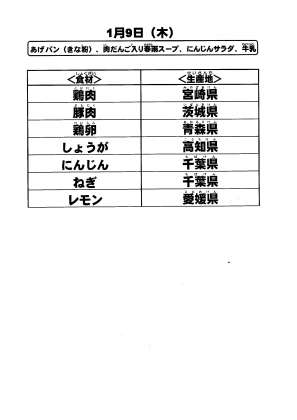 1月9日（木）
あげパン（きな粉）、肉だんご入り春雨スープ、にんじんサラダ、牛乳
＜食材＞ ＜生産地＞
鶏肉 宮崎県
豚肉 茨城県
鶏卵 青森県
しょうが 高知県
にんじん 千葉県
ねぎ 千葉県
レモン 愛媛県